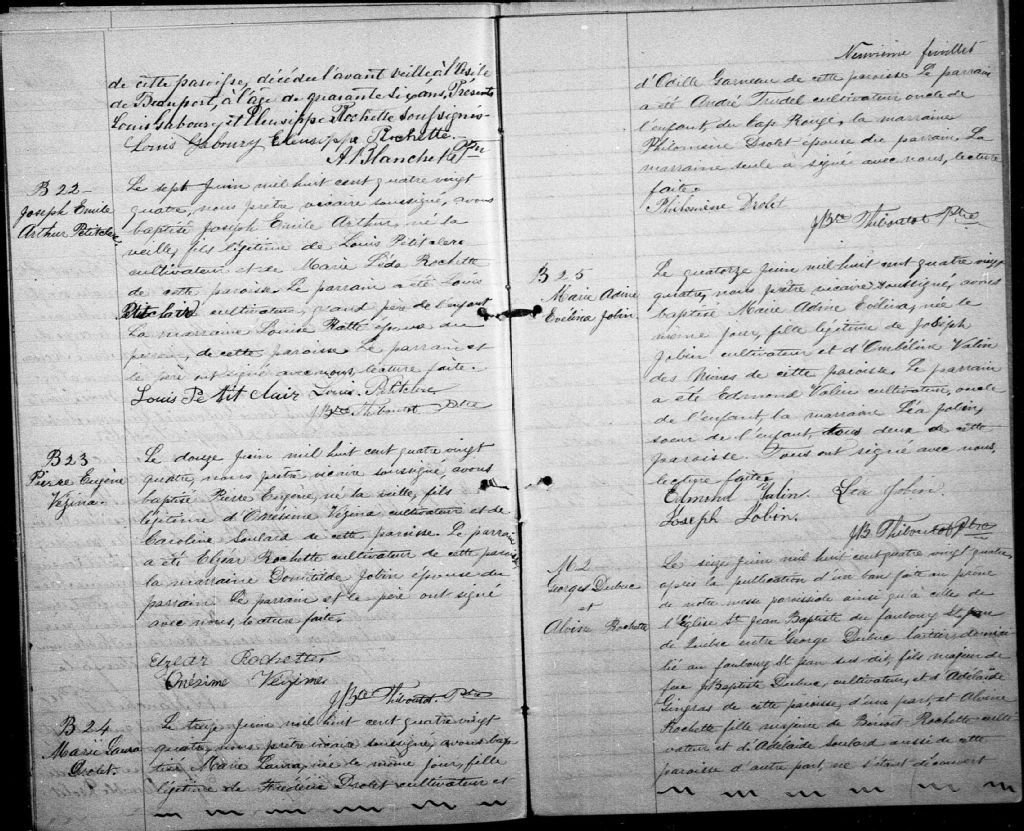 de cette paroisse, décédé l'avant veille à l'Asile
de Beauport, à l'âge de quarante six ans, Présents
Louis Gaboury et Eleusippe Rochette soussignés
Louis Gaboury Eleusippe Rochette
A Blanchette Ptre
B 22
Joseph Emile
Arthur Petitclerc
Le sept Juin mil huit cent quatre vingt
quatre, nous prêtre vicaire soussigné, avons
baptisé Joseph Emile Arthur, né la
veille, fils légitime de Louis Petitclerc
cultivateur et de Marie Léda Rochette
de cette paroisse. Le parrain a été Louis
Petitclair cultivateur, grand père de l'enfant
la marraine Louise Ratté épouse du
parrain, de cette paroisse. Le parrain et
le père ont signé avec nous, lecture faite.
Louis Petit clair Louis Petitclerc
JBte Thiboutot Ptre
B 23
Pierre Eugène
Vézina
Le douze Juin mil huit cent quatre vingt
quatre, nous prêtre vicaire soussigné, avons
baptisé Pierre Eugène, né la veille, fils
légitime d'Onésime Vézina cultivateur et de
Caroline Soulard de cette paroisse. Le parrain
a été Elzéar Rochette cultivateur de cette paroisse
la marraine Domitilde Jobin épouse du
parrain. Le parrain et le père ont signé
avec nous, lecture faite.
Elzear Rochette
Onésime Vezina
JBte Thiboutot Ptre
B 24
Marie Laura
Drolet.
Le treize Juin mil huit cent quatre vingt
quatre, nous prêtre vicaire soussigné, avons bap
tisé Marie Laura, née le même jour, fille
légitime de Frédéric Drolet cultivateur et
Neuvième feuillet
d'Odille Garneau de cette paroisse. Le parrain
a été André Trudel cultivateur oncle de
l'enfant, du Cap Rouge, la marraine
Philomène Drolet épouse du parrain. La
marraine seule a signé avec nous, lecture
faite.
Philomène Drolet
JBte Thiboutot Ptre
B 25
Marie Adine
Evélina Jobin
Le quatorze Juin mil huit cent quatre vingt
quatre, nous prêtre vicaire soussigné, avons
baptisé Marie Adine Evélina, née le
même jour, fille légitime de Joseph
Jobin cultivateur et d'Ombéline Valin
des Mines de cette paroisse. Le parrain
a été Edmond Valin cultivateur, oncle
de l'enfant, la marraine Léa Jobin,
soeur de l'enfant, tous deux de cette
paroisse. Tous ont signé avec nous,
lecture faite.
Edmond Valin. Léa Jobin.
Joseph Jobin.
JB Thiboutot Ptre
M 2
Georges Dubuc
et
Alvine Rochette
Le seize Juin mil huit cent quatre vingt quatre,
après la publication d'un ban faite au prône
de notre messe paroissiale ainsi qu'à celle de
l'Eglise St Jean Baptiste du faubourg St Jean
de Québec entre George Dubuc domici
lié au faubourg St Jean sus dit, fils majeur de
feu JBaptiste Dubuc, cultivateur, et d'Adélaïde
Gingras de cette paroisse, d'une part, et Alvine
Rochette fille majeure de Benoit Rochette culti
vateur et d'Adélaïde Soulard aussi de cette
paroisse d'autre part, ne s'étant découvert